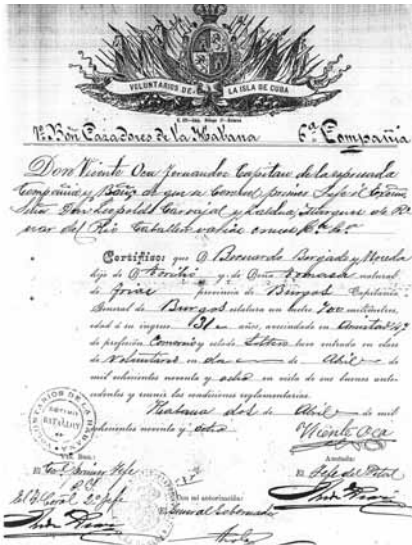 VOLUNTARIOS DE LA ISLA DE CUBA
Bon Cazadores de la Habana 6ª Compañia
Don Vicente Oca Fernandez Capitan de la expresada
Compañia y Bon de que es Coronel primer Jefe
Don Leopoldo Carvajal y Marques de Pi
nar del Rio Caballero
Certifico: que D Bernardo Borjado y
hijo de y de Doña Tomasa natural
de provincia de Burgos Capitanía
General de Burgos estatura un metro 700 milímetros,
edad á su ingreso 31 años, avecindado en Amistad 47
de profesión Comercio y estado Soltero tuvo entrada en clase
de Voluntario en de Abril de
mil ochocientos noventa y ocho en vista de sus buenos ante-
cedentes y reunir las condiciones reglamentarias.
Habana dos de Abril de mil
ochocientos noventa y ocho
Vicente Oca
VOLUNTARIOS DE LA HABANA
SEPTIMO BATALLON
Vto. Bno.:
Anotado:
El Primer Jefe
El Jefe del Detal
P. I.
El T. Coral 2º Jefe
Con mi autorización:
El General Gobernador